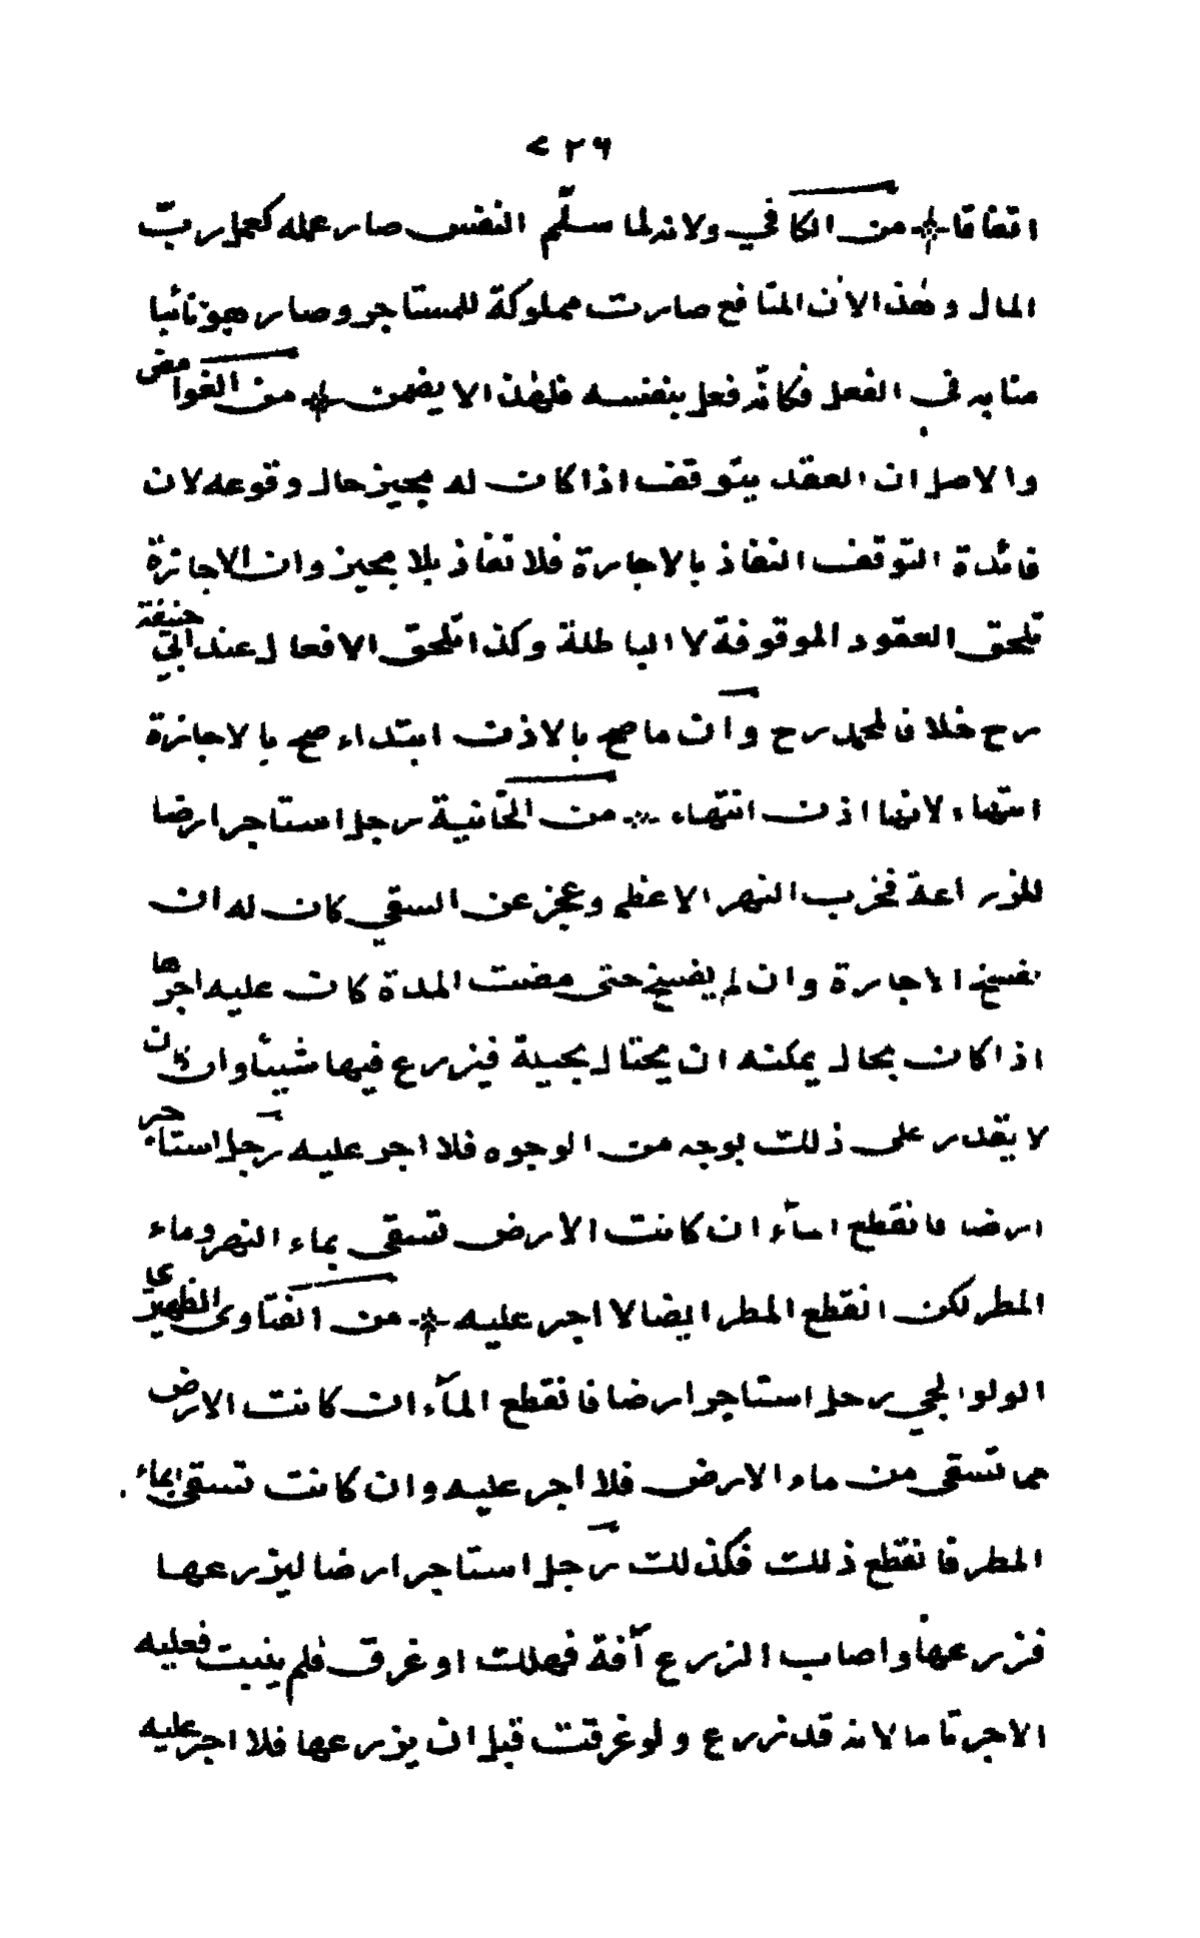 ٧٢٦
اتفاقا من الكافي ولانه لما سلّم النفس صار عمله كعمل ربّ
المال وهذا لان المنافع صارت مملوكة للمستاجر وصار هو نائبا
منابه في الفعل فكانّه فعل بنفسه فلهذا لا يضمن من الغوامض
والاصل ان العقد يتوقف اذا كان له مجيز حال وقوعه لان
فائدة التوقف النفاذ بالاجازة فلا نفاذ بلا مجيز وان الاجازة
تلحق العقود الموقوفة لا الباطلة وكذا تلحق الافعال عند ابي حنيفة
رح خلافا لمحمد رح وان ما صح بالاذن ابتداء صح بالاجازة
انتهاء لانها اذن انتهاء من الخانية رجل استاجر ارضا
للزراعة فخرب النهر الاعظم وعجز عن السقي كان له ان
يفسخ الاجارة وان لم يفسخ حتى مضت المدة كان عليه اجرها
اذا كان بحال يمكنه ان يحتال بحيلة فيزرع فيها شيئا وان كان
لا يقدر على ذلك بوجه من الوجوه فلا اجر عليه رجل استاجر
ارضا فانقطع الماء ان كانت الارض تسقى بماء النهر وماء
المطر لكن انقطع المطر ايضا لا اجر عليه من الفتاوى الظهيرى
الولوالجي رجل استاجر ارضا فانقطع المآء ان كانت الارض
مما تسقى من ماء الارض فلا اجر عليه وان كانت تسقى بماء
المطر فانقطع ذلك فكذلك رجل استاجر ارضا ليزرعها
فزرعها واصاب الزرع آفة فهلك او غرق فلم ينبت فعليه
الاجر تاما لانه قد زرع ولو غرقت قبل ان يزرعها فلا اجر عليه